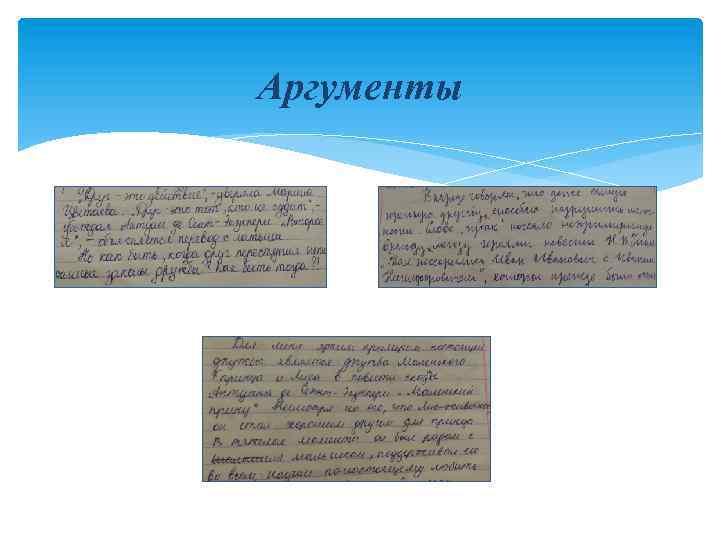 Аргументы
"Друг – это действие", – уверяла Марина
Цветаева. "Друг – это тот, кто не судит", –
Антуан де Сент-Экзюпери. "Второе
я", – перевод с латыни
Но как быть, когда друг переступил
законы дружбы? Как быть тогда?!
говорят, что даже самую
дружбу способно разрушить
слово, так начало
между героями повести Н.В.
"Как поссорились Иван Иванович с Иваном
Никифоровичем", которые прежде были
Для меня ярким примером настоящей
дружбы является дружба Маленького
принца и Лиса в повести
Антуана де Сент-Экзюпери "Маленький
принц". Несмотря на то, что Лис
он стал хорошим другом для принца
В тяжелые моменты он был рядом с
мальчиком, поддерживал его
во всем, любить